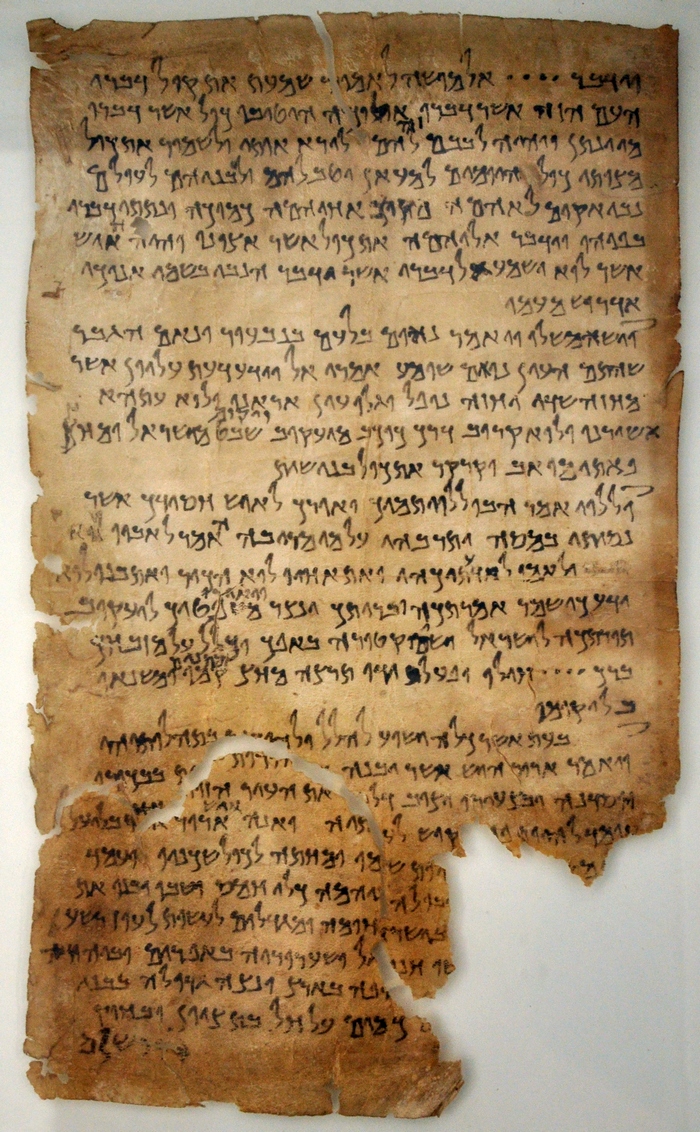 וידבר •••• אל מושה לאמור שמעת את קול דברי
העם הזה אשר דברו אליכה היטיבו כול אשר דברו
מי ינתן ויהיה לבבם זה להם לירא אותי ולשמור את כול
מצותי כול היומים למעאן יטב להם ולבניהם לעולם
נבי אקים לאהמה מקרב אחיהמה כמוכה ונתתי דברי
בפיהו וידבר אליהמה את כול אשר אצונו והיה האיש
אשר לוא ישמע אל דברי אשר ידבר הנבי בשמי אנוכי
אדרוש מעמו
וישא משלו ויאמר נאום בלעם בנבעור ונאם הגבר
שהתם העין נואם שומע אמרי אל וידע דעת עליון אשר
מחזה שדי יחזה נופל וגלו עין אראנו ולוא עתהא
אשורנו ולוא קרוב דרך כוכב מיעקוב ויקום שבט מישראל ומחץ
פאתי מואב וקרקר את כול בני שית
וללוי אמר הבו ללוי תמיך ואורך לאיש חסידך אשר
נסיתו במסה ותרבהו על מי מריבה האמר לאביו לוא
ולאמו לוא ידעתיכהו ואת אחיו לוא הכיר ואת בנו לוא
ידע כי שמר אמרתכה ובריתך ינצר ויאירו משפטיך ליעקוב
תורתכה לישראל ישים קטורה באפך וכליל על מזבחך
ברך •••• חילו ופעל ידו תרצה מחץ מתנים קמו ומשנאו
בל יקומו
בעת אשר כלה ישוע להלל ולהודות בתהלותיהו
ויאמר ארור היש אשר יבנה את העיר הזות בבכורו
ייסדנה ובצעירו יציב דלתיה ואנה איש ארור בליעל
עומד להיות יקוש לעמו ומחתה לכול שכניו ועמד
שניהמה כלי חמס ושבו ובנו את
חומה ומגדלים לעשות לעוז רשע
ושערוריה באפרים וביהודה
בארץ ונצה גדולה בבני
כמים על חל בת ציון ובחוק
ירושלים